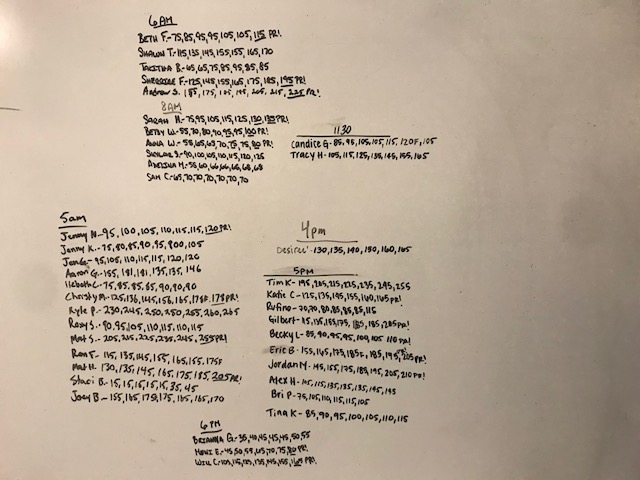 6AM
BETH F.-75,85,95,95,105,105,115 PR!
SHAWN T.-115,135,145,155,155,165,170
TABITHA B.-65,65,75,85,95,85,85
SHERRIE F.-125,145,155,165,175,185,195PR!
ANDREW S. 185, 175, 195, 205, 215, 225PR!
8AM
SARAH H.-75,95,105,115,125,130,135PR!
BETSY W.-55,70,80,90,95,95,100PR!
ANNA W.-55,65,65,70,75,75,80 PR!
SKYLAR S.-90,100,105,110,115,120,125
ADELINA M.-55,60,66,66,66,68,68
SAM C.-65,70,70,70,70,70,70
1130
Candice G-85,95,105,105,115,120F,105
Tracy H-105,115,125,135,145,155,165
5am
Jenny N.-95,100,105,110,115,115,120PR!
Jenny K.-75,80,85,90,95,800,105
Jon G.-95,105,110,115,115,120,126
Aaron G.-155,181,181,135,135,146
-75,85,85,85,90,90,90
Christy M.-125,136,145,156,165,175F,178PR!
Kyle P.-230,245,250,250,255,260,265
Rosy S.-90,95,105,110,115,110,115
Mat S.-205,215,225,235,245,255PR!
Ron F.-115,135,145,155,165,155,175F
Mat H. 130,135,145,165,175,185,205PR!
Staci B.-15,15,15,15,35,45
Joey B-155,165,175,175,165,165,170
4pm
Desiree'-130,135,140,150,160,165
5PM
Tim K-195,205,215,225,235,245,255
Katie C-125,135,145,155,160,165PR!
Rufino-70,70,80,85,85,85,115
Gilbert-115,135,155,175,185,185,205PR!
Becky L-85,90,95,95,100,105,110 PR!
Eric B-155,165,175,185F,185,195,205PR!
Jordan M-145,155,175,185,195,205,210 PR!
Alex H-105,115,135,135,135,145,145
Bri P-75,105,110,115,115,105
Tina K-85,90,95,100,105,110,115
6PM
BRIANNA G.-35,40,45,45,45,50,55
-45,50,55,65,70,75,80PR!
WILL C-105,115,125,135,145,155,165PR!